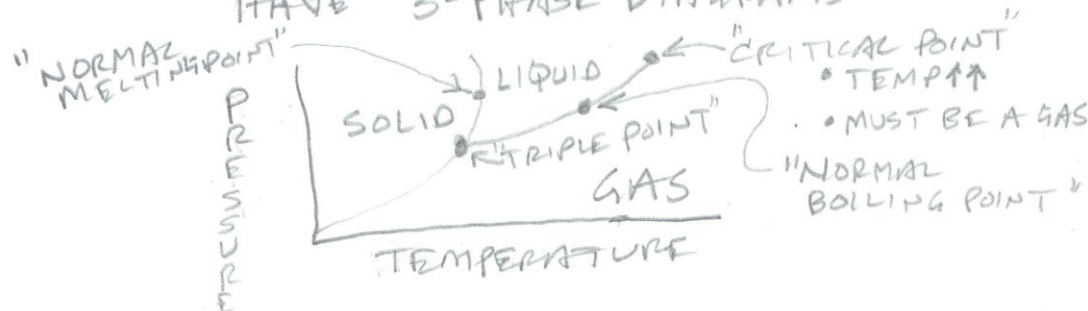 HAVE 3-PHASE DIAGRAMS
"NORMAL MELTINGPOINT"
PRESSURE
SOLID
LIQUID
"TRIPLE POINT"
GAS
TEMPERATURE
"CRITICAL POINT"
• TEMP↑↑
• MUST BE A GAS
"NORMAL
BOILING POINT"